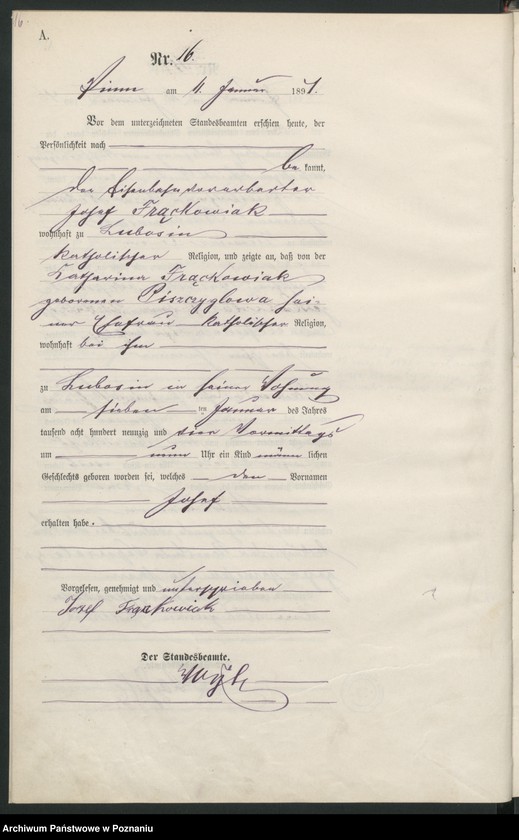 16
A.
Nr. 16.
Pinne am 11. Januar 1894.
Vor dem unterzeichneten Standesbeamten erschien heute, der
Persönlichkeit nach
be kannt,
der Eisenbahnvorarbeiter
Josef Frąckowiak
wohnhaft zu Lubosin
katholischer Religion, und zeigte an, daß von der
Katharina Frąckowiak
geborenen Piszczyglowa sei-
ner Ehefrau katholischer Religion,
wohnhaft bei ihm
zu Lubosin in seiner Wohnung
am sieben ten Januar des Jahres
tausend acht hundert neunzig und vier Vormittags
um neun Uhr ein Kind männ lichen
Geschlechts geboren worden sei, welches den Vornamen
Josef
erhalten habe.
Vorgelesen, genehmigt und unterschrieben
Jozef Frąckowiak
Der Standesbeamte.
Archiwum Państwowe w Poznaniu